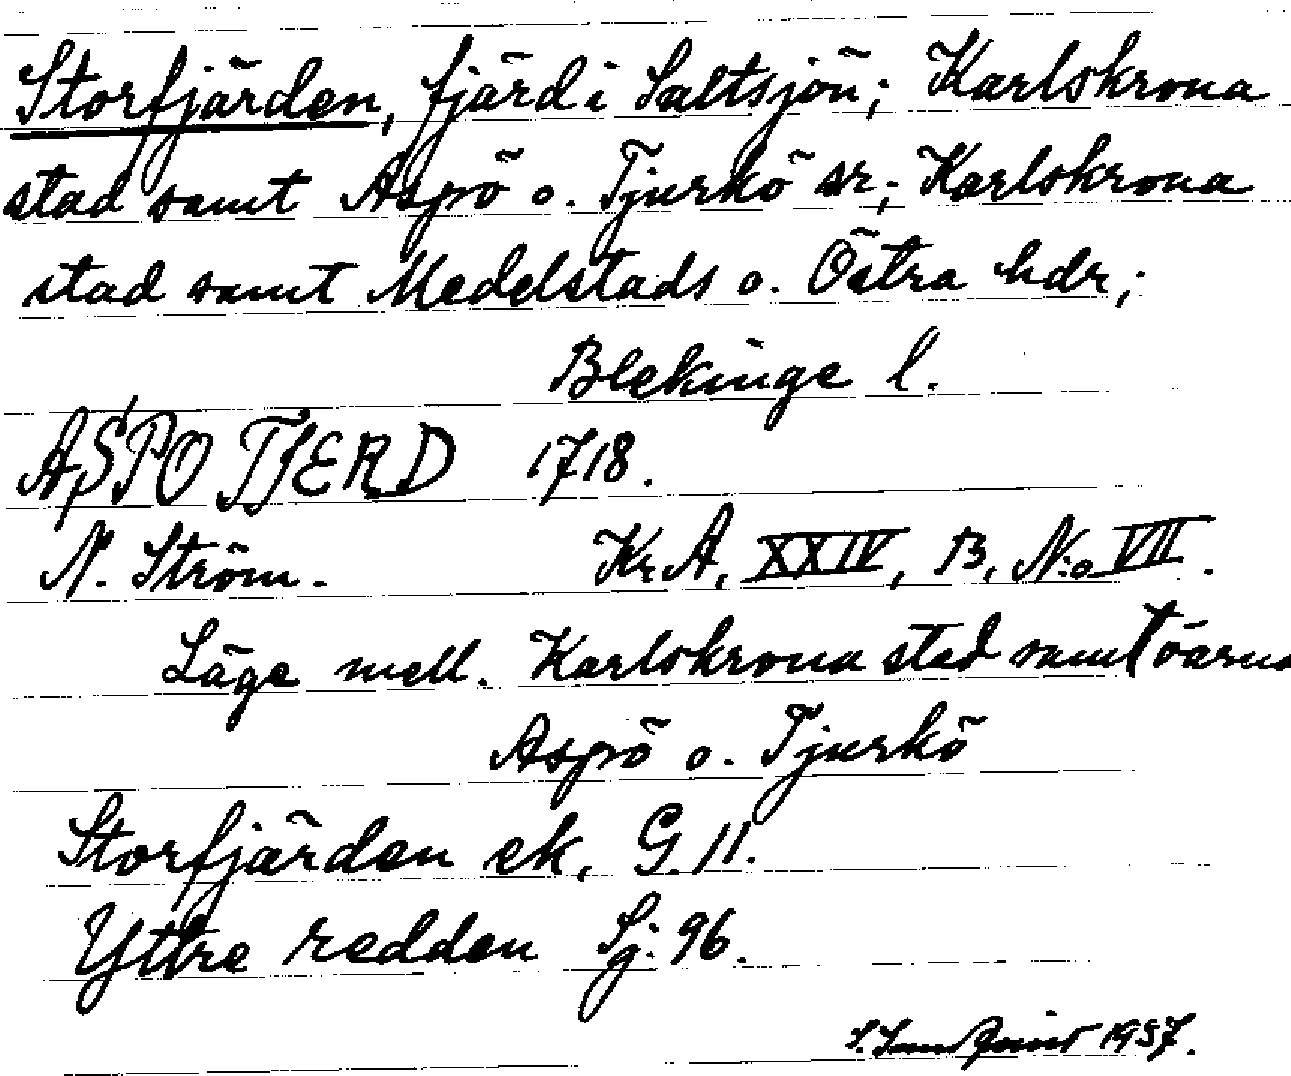 Storfjärden, fjärd i Saltsjön; Karlskrona
stad samt Aspö o. Tjurkö snr; Karlskrona
stad samt Medelstads o. Östra hdr;
Blekinge l.
ASPO FJERD 1718.
N. Ström. Kr.A, XXIV, B, N:o VII.
Läge mell. Karlskrona stad samt öarna
Aspö o. Tjurkö
Storfjärden ek. G. 11.
Yttre redden Sj. 96.
1957.